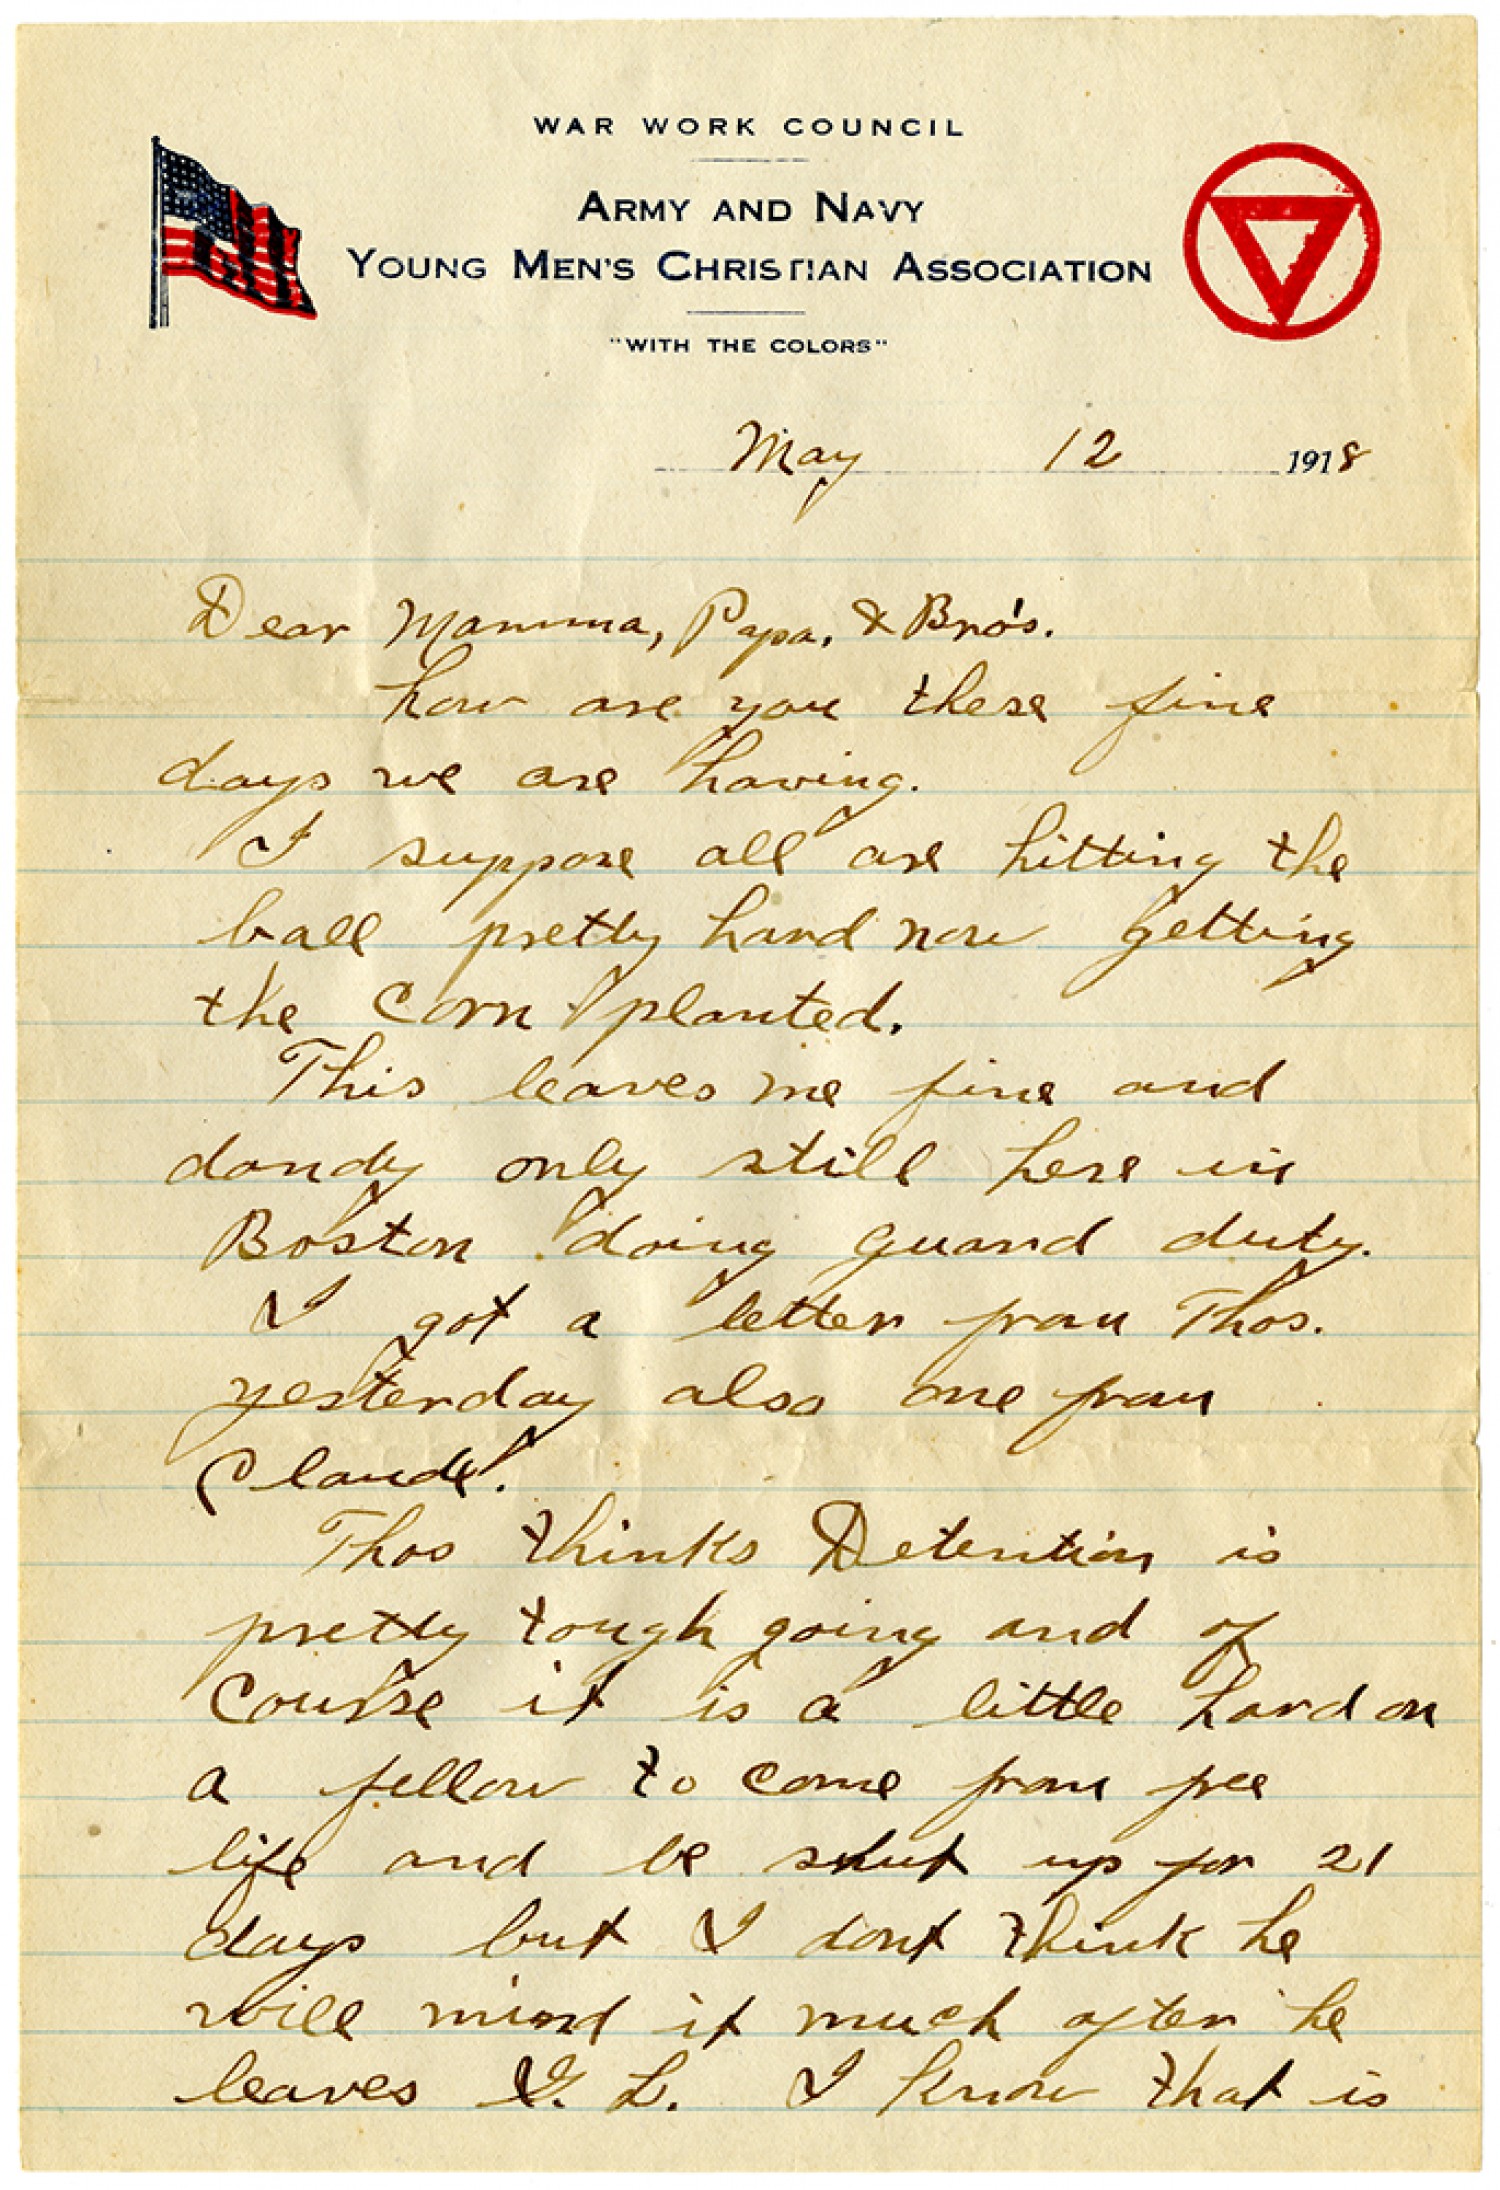 WAR WORK COUNCIL
ARMY AND NAVY
YOUNG MEN'S CHRISTIAN ASSOCIATION
"WITH THE COLORS"
May 12 1918
Dear Mamma, Papa, & Bro's.
how are you these fine
days we are having.
I suppose all are hitting the
ball pretty hard now getting
the corn planted.
This leaves me fine and
dandy only still here in
Boston doing guard duty.
I got a letter from Thos.
yesterday also one from
Claude.
Thos thinks Detention is
pretty tough going and of
course it is a little hard on
a fellow to come from free
life and be shut up for 21
days but I dont think he
will mind it much after he
leaves G. L. I know that is